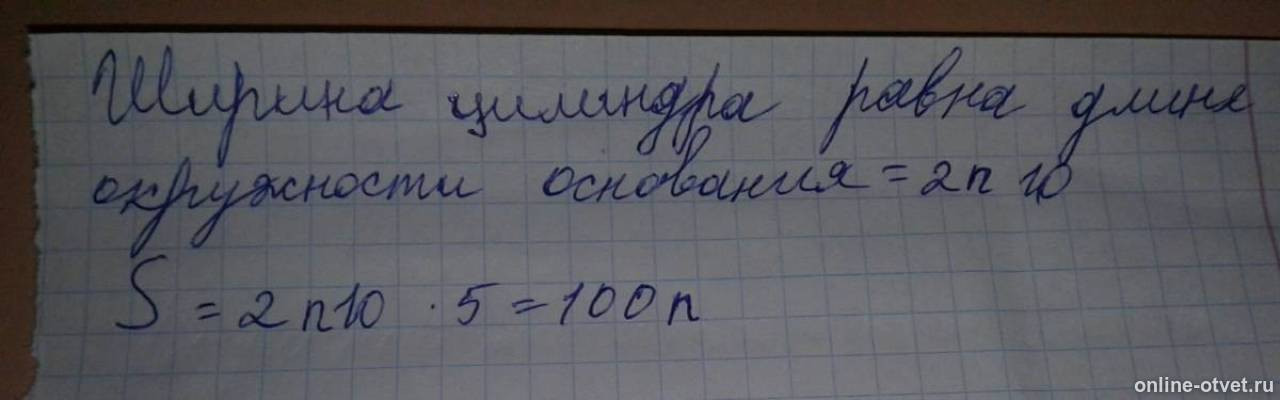 Ширина цилиндра равна длине
окружности основания = 2п 10
S = 2п10 · 5 = 100п
online-otvet.ru